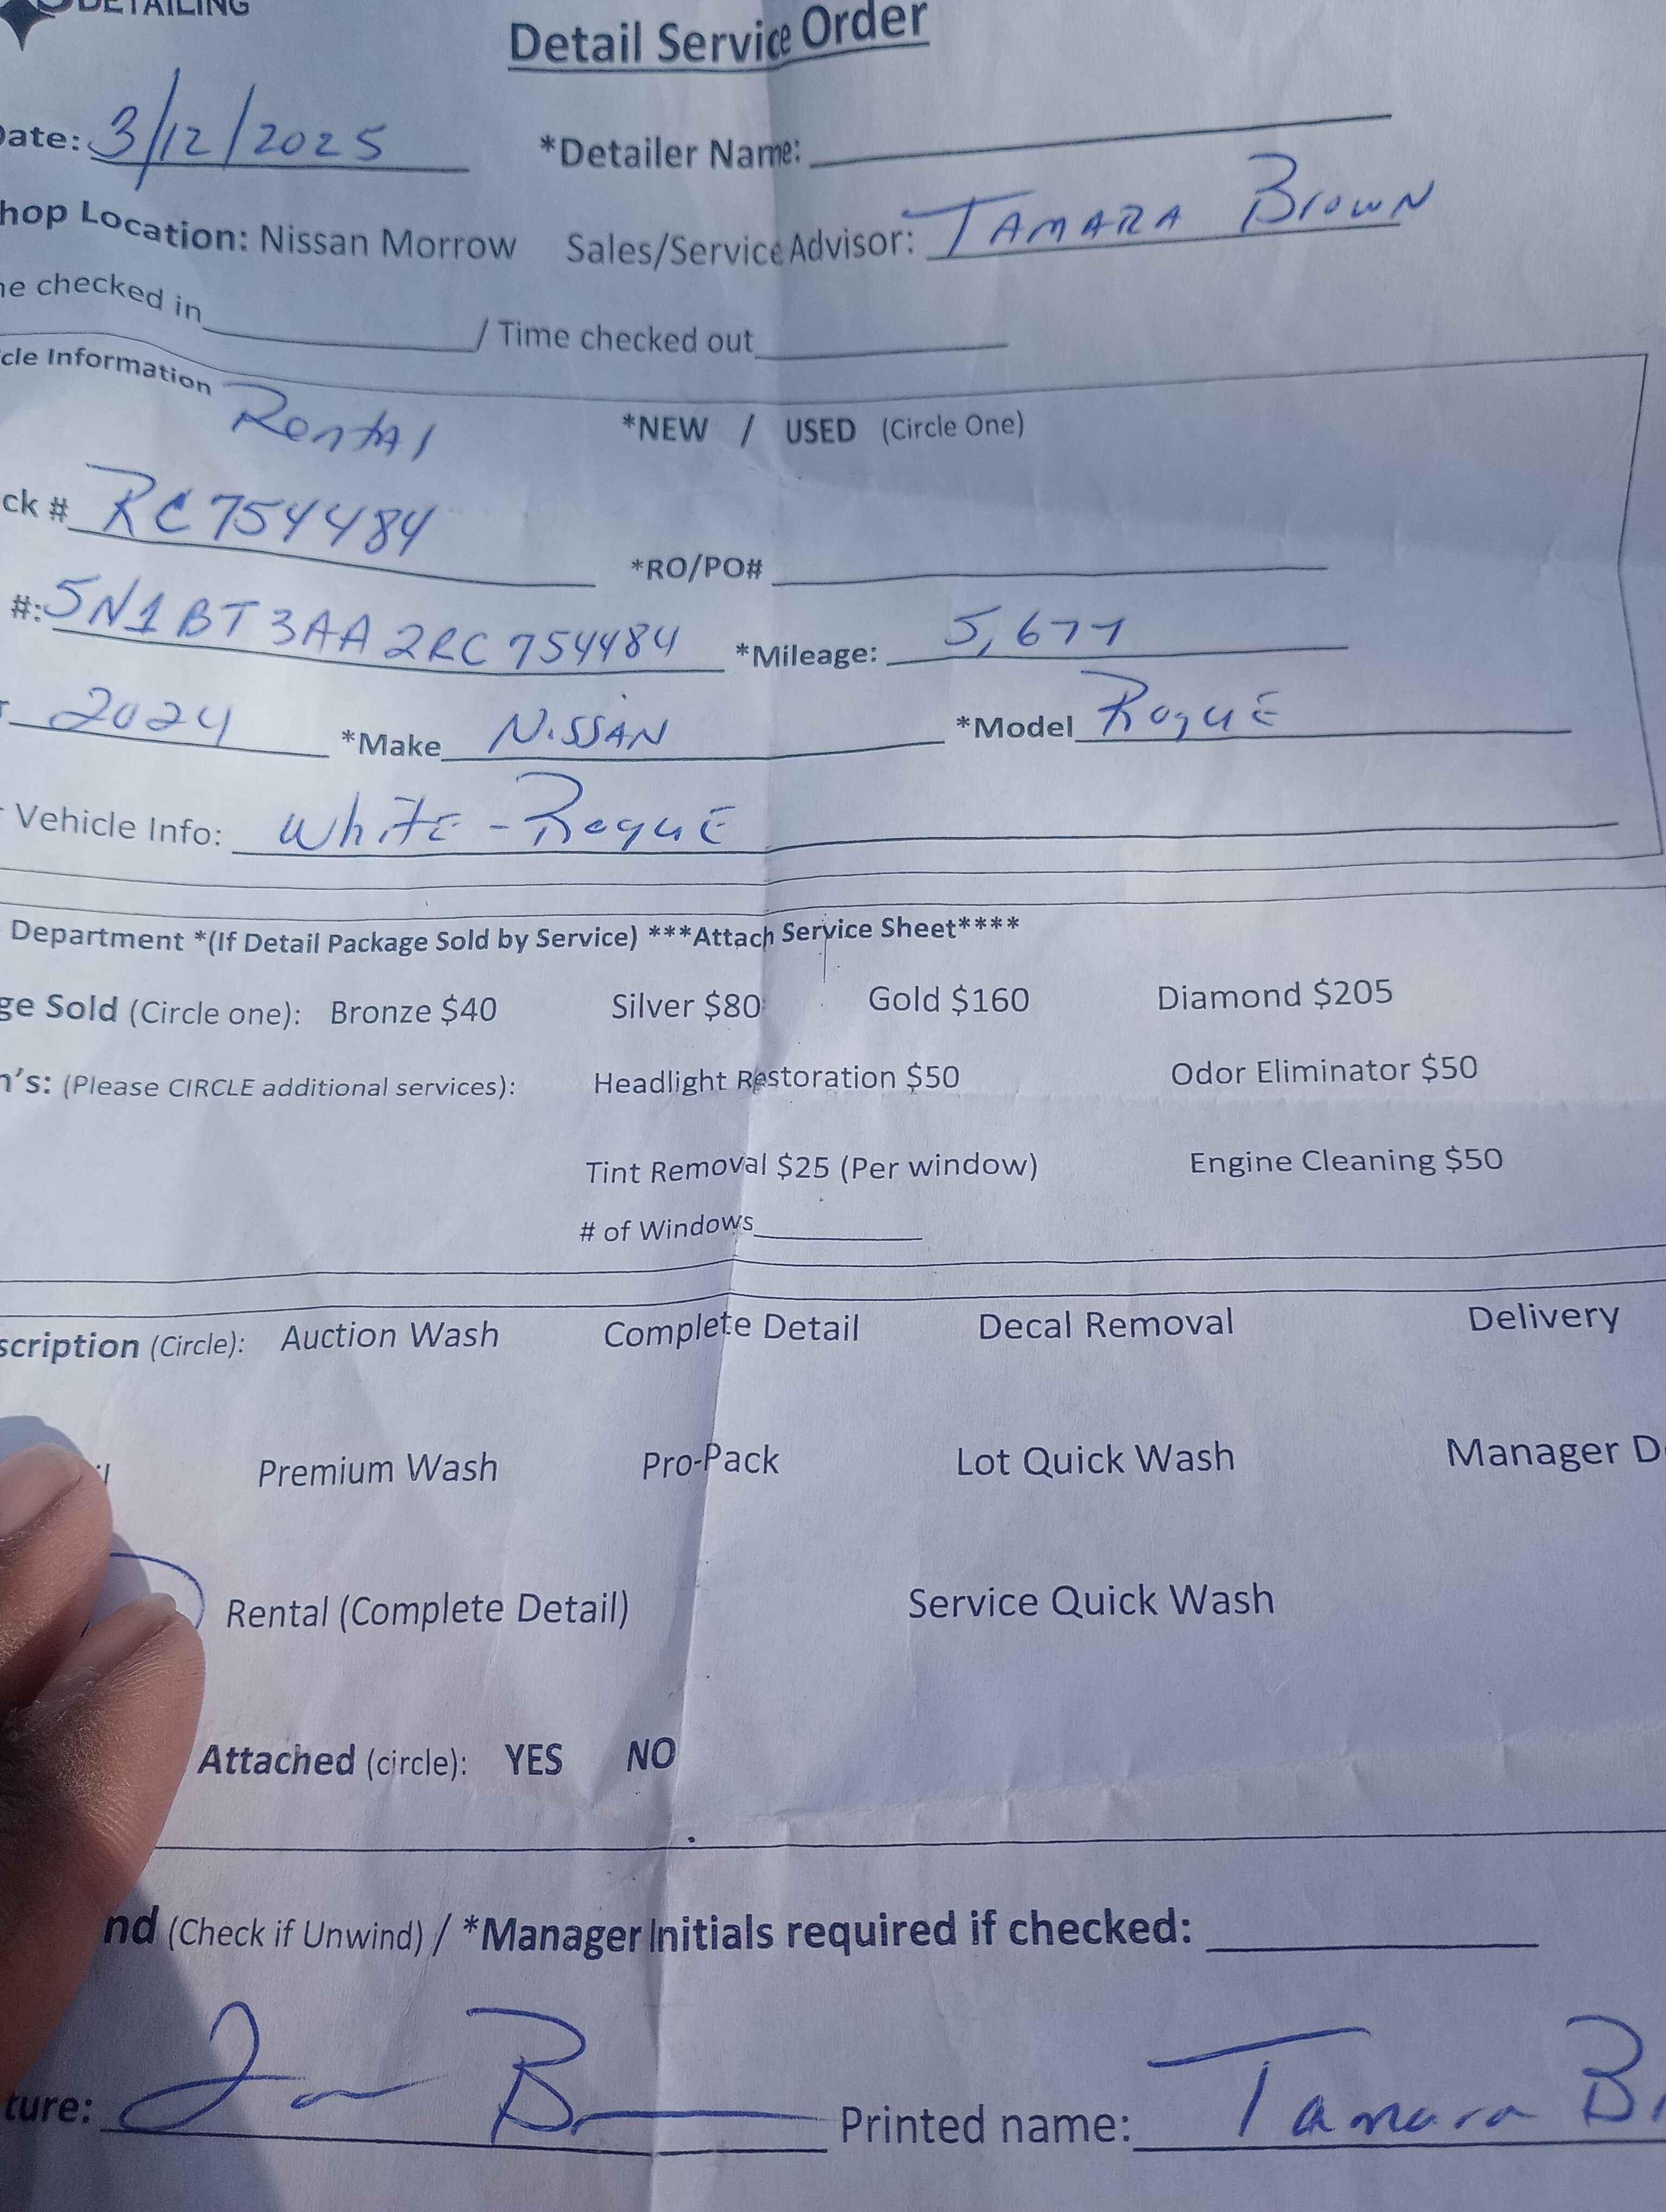 DETAILING
Detail Service Order
Date: 3/12/2025 *Detailer Name:
hop Location: Nissan Morrow Sales/Service Advisor: TAMARA BROWN
me checked in / Time checked out
cle Information Rental *NEW / USED (Circle One)
ck # RC754484 *RO/PO#
#: 5N1BT3AA2RC754484 *Mileage: 5,677
r 2024 *Make NiSSAN *Model RogUE
r Vehicle Info: WhiTE - RogUE
Department *(If Detail Package Sold by Service) ***Attach Service Sheet****
ge Sold (Circle one): Bronze $40 Silver $80 Gold $160 Diamond $205
n's: (Please CIRCLE additional services): Headlight Restoration $50 Odor Eliminator $50
Tint Removal $25 (Per window) Engine Cleaning $50
# of Windows
scription (Circle): Auction Wash Complete Detail Decal Removal Delivery
il Premium Wash Pro-Pack Lot Quick Wash Manager D
Rental (Complete Detail) Service Quick Wash
Attached (circle): YES NO
nd (Check if Unwind) / *Manager Initials required if checked:
ture: Printed name: Tamara Br